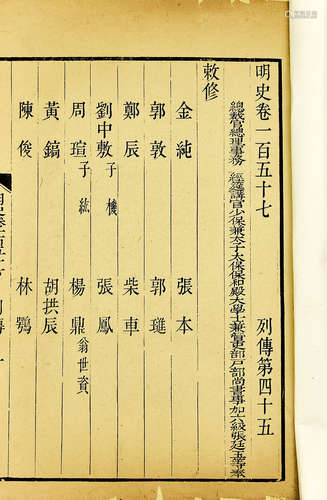 明史卷一百五十七 列傳第四十五
總裁官總理事務 經筵講官少保兼太子太保保和殿大學士兼管吏部戶部尚書事加六級張廷玉等奉
敕修
金純 張本
郭敦 郭璡
鄭辰 柴車
劉中敷子機 張鳳
周瑄子紘 楊鼎翁世資
黃鎬 胡拱辰
陳俊 林鶚